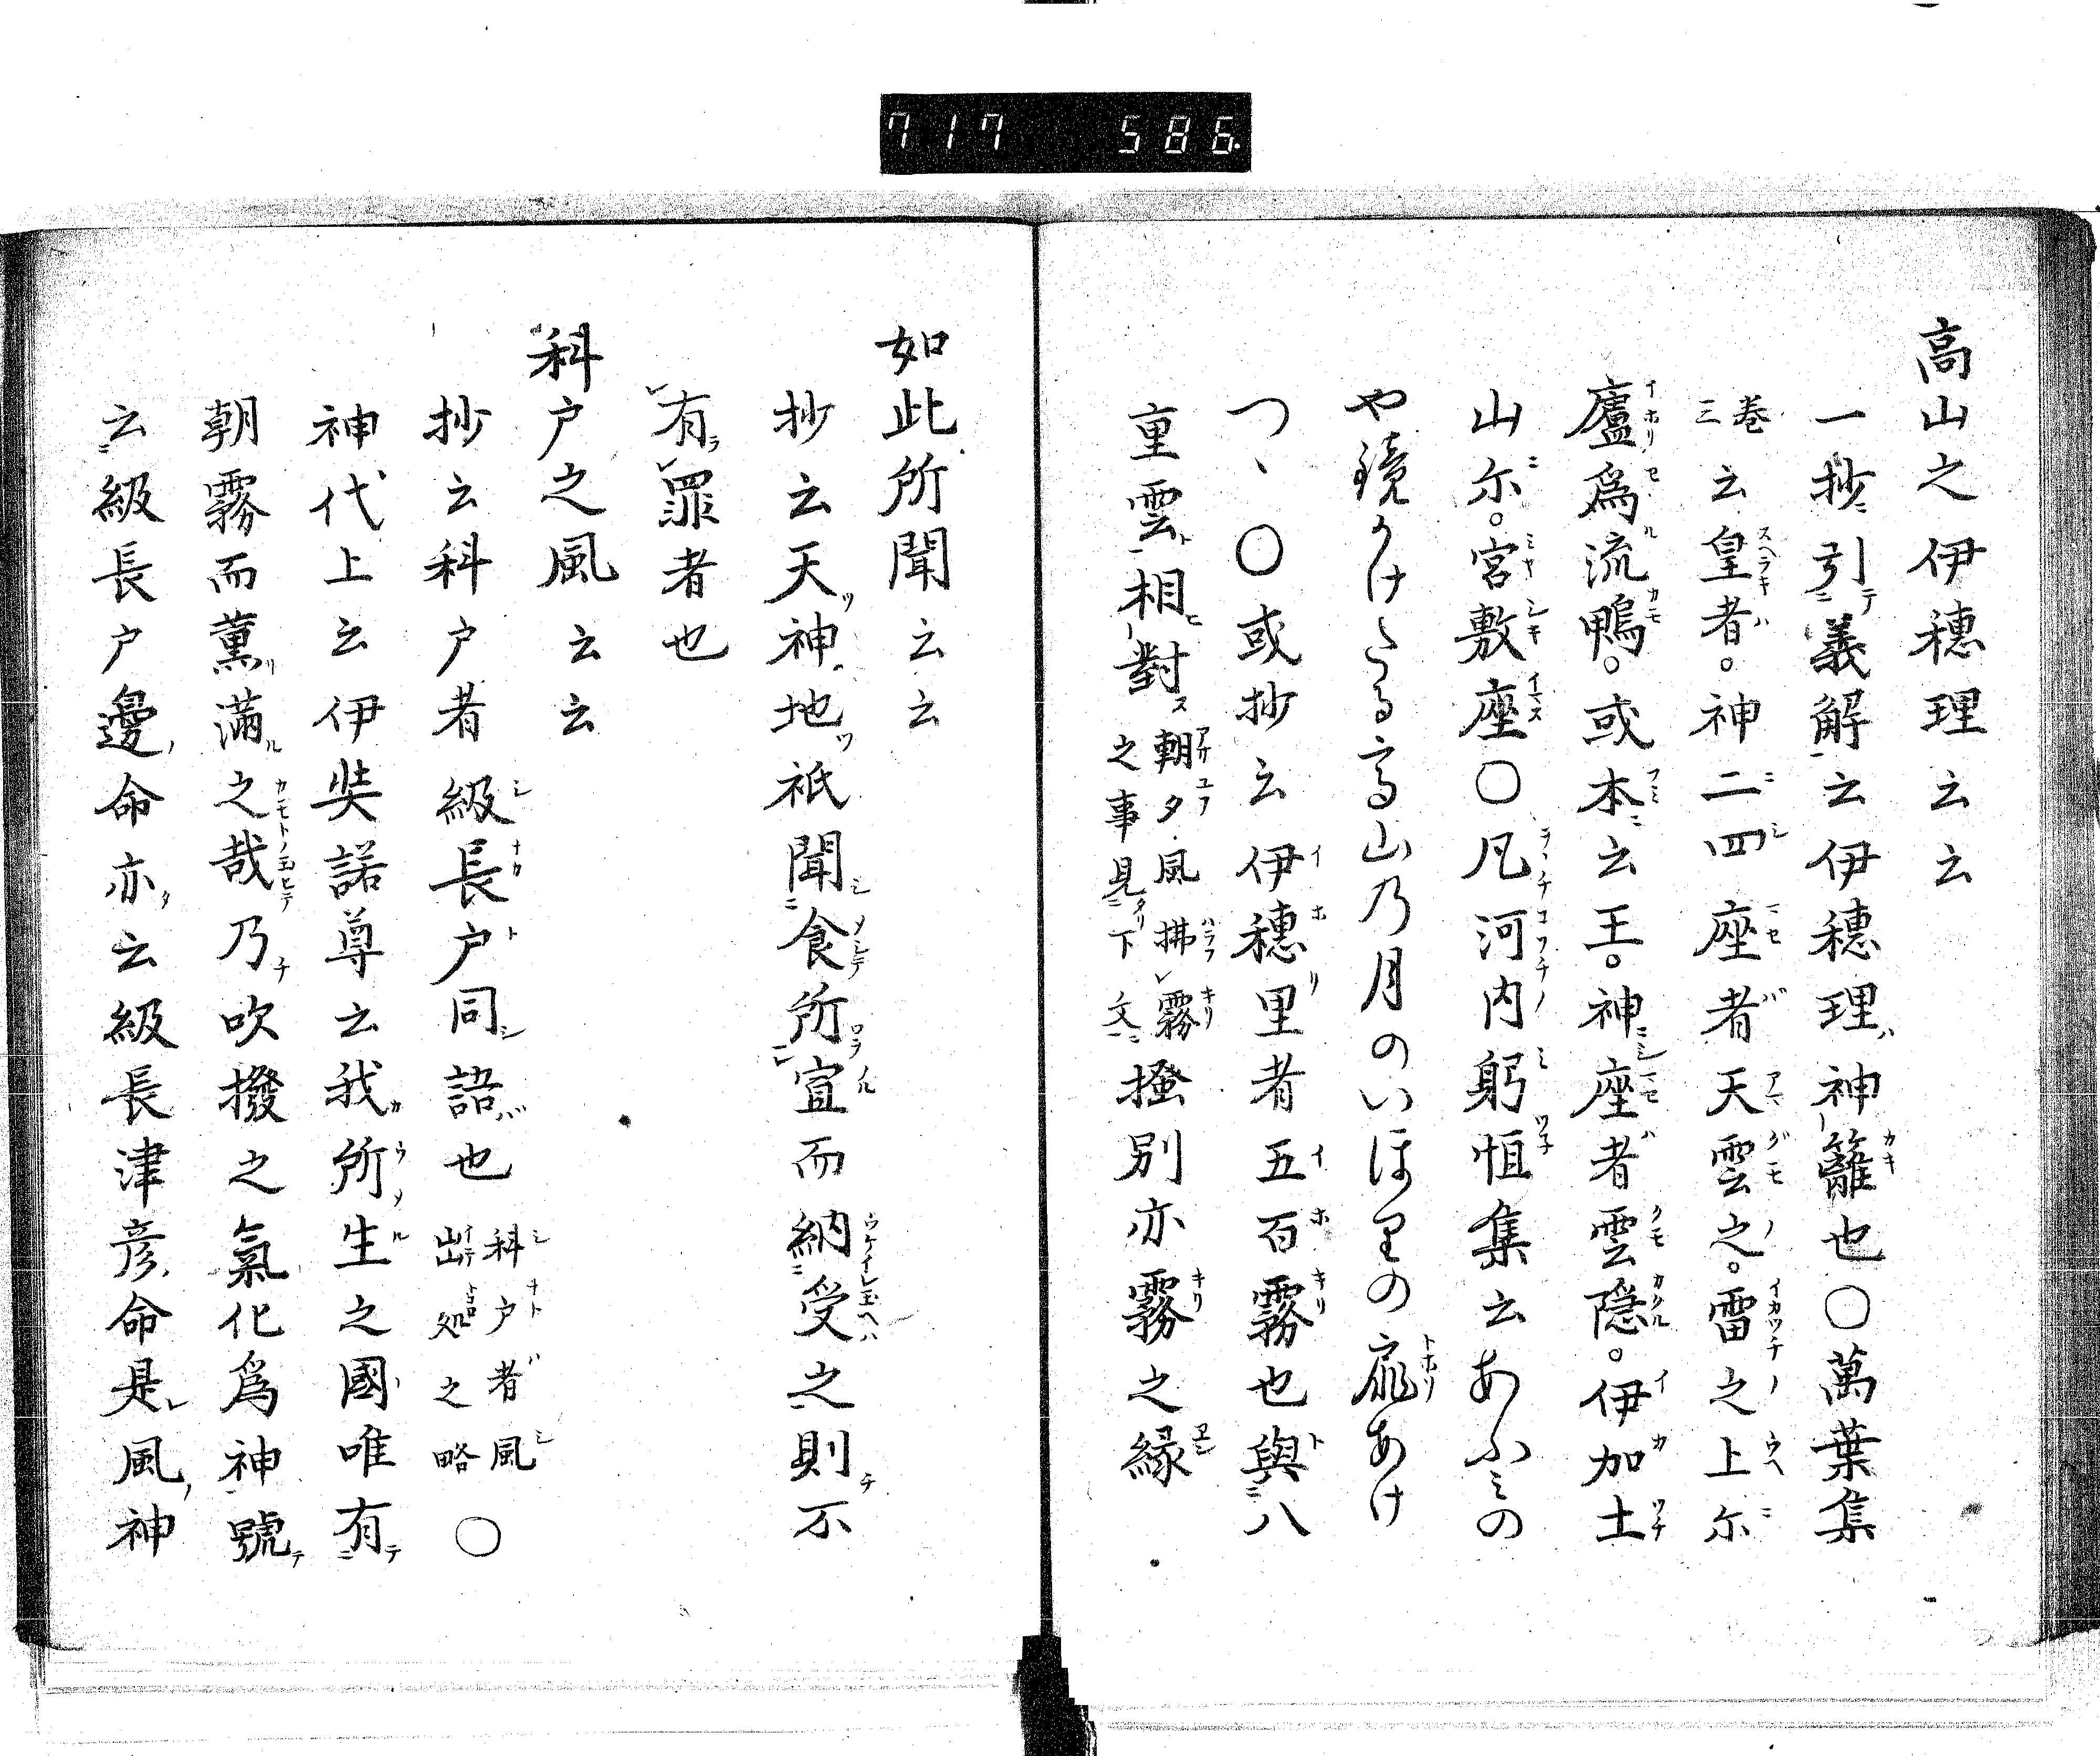 717 586
高山之伊穗理云云
一抄引義解云伊穗理神籬也〇萬葉集
巻三云皇者。神二四座者天雲之。雷之上尓
廬爲流鴨。或本云王。神座者雲隠。伊加土
山尓。宮敷座〇凡河内躬恒集云あふみの
や鏡かけたる高山乃月のいほりの扉あけ
つゝ〇或抄云伊穗里者五百霧也與八
重雲相對朝夕風拂霧之事見下文掻別亦霧之縁
如此所聞云云
抄云天神地祇聞食所宣而納受之則不
有罪者也
科戸之風云云
抄云科戸者級長戸同語也科戸者風出処之略〇
神代上云伊奘諾尊云我所生之國唯有
朝霧而薫滿之哉乃吹撥之氣化爲神號
云級長戸邊命亦云級長津彦命是風神